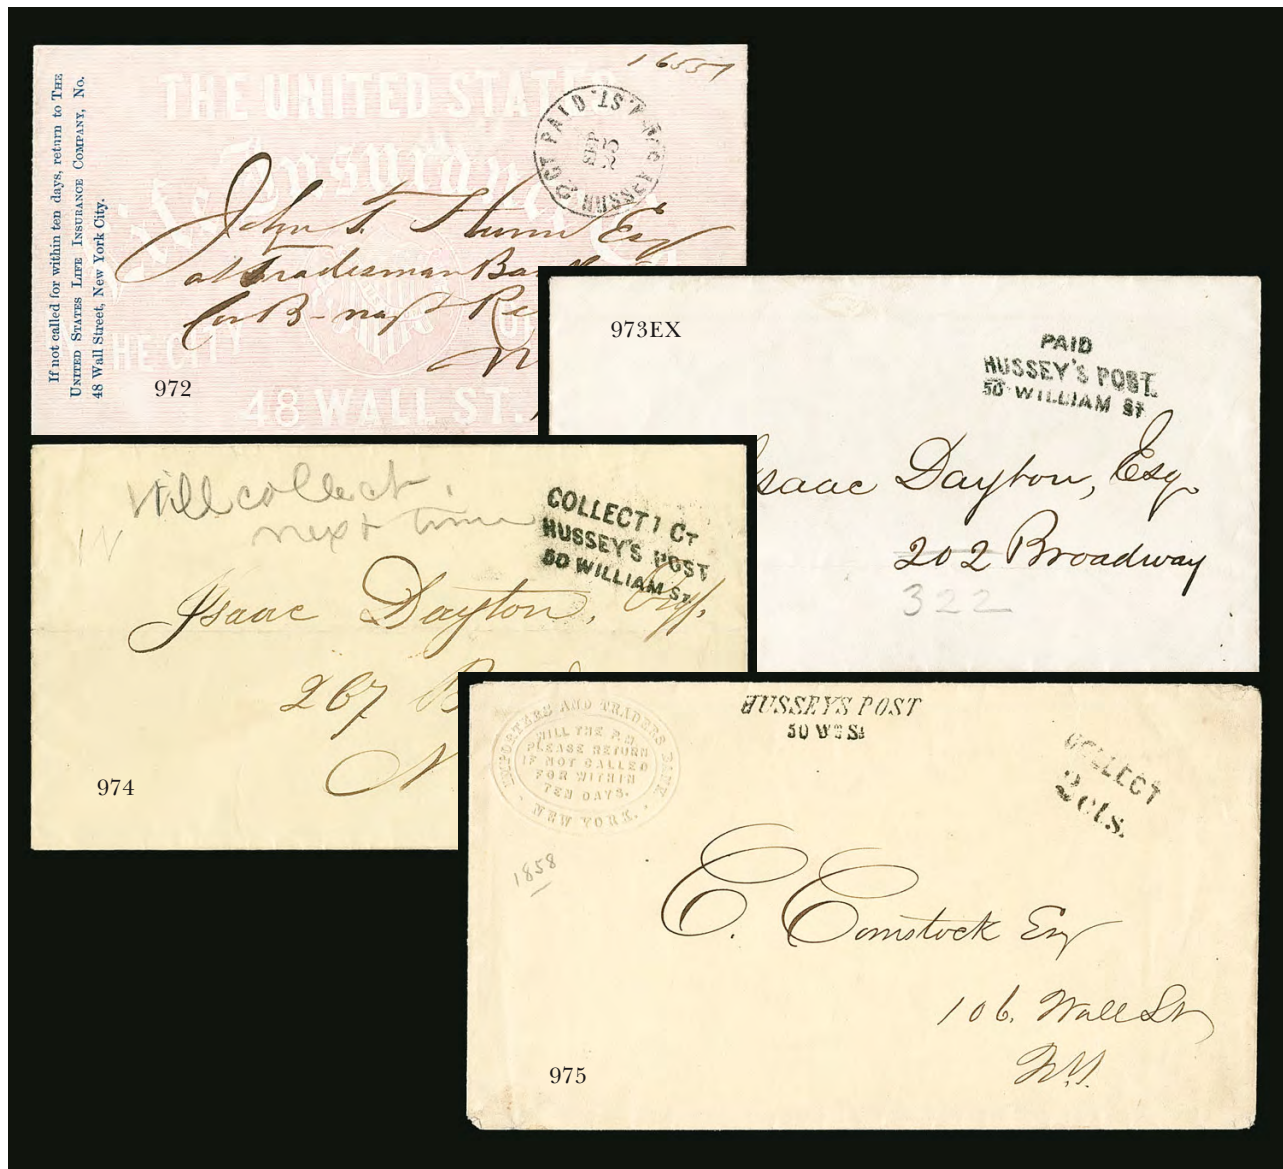 If not called for within ten days, return to THE
UNITED STATES LIFE INSURANCE COMPANY, No.
48 Wall Street, New York City.
THE UNITED STATES
Life Insurance
THE CITY
48 WALL ST.
16557
HUSSEY 2 CT PAID
John T. Esq
at Tradesman
Cor B-
972
973EX
PAID
HUSSEY'S POST.
50 WILLIAM ST
Isaac Dayton, Esq.
202 Broadway
322
Will collect
next time
COLLECT 1 CT
HUSSEY'S POST
50 WILLIAM ST.
Isaac Dayton, Esq.
267
N
974
IMPORTERS AND TRADERS BANK
WILL THE P.M.
PLEASE RETURN
IF NOT CALLED
FOR WITHIN
TEN DAYS.
NEW YORK.
HUSSEY'S POST
50 Wm St
COLLECT
2cts.
1858
C. Comstock Esq
106. Wall St
N.Y.
975